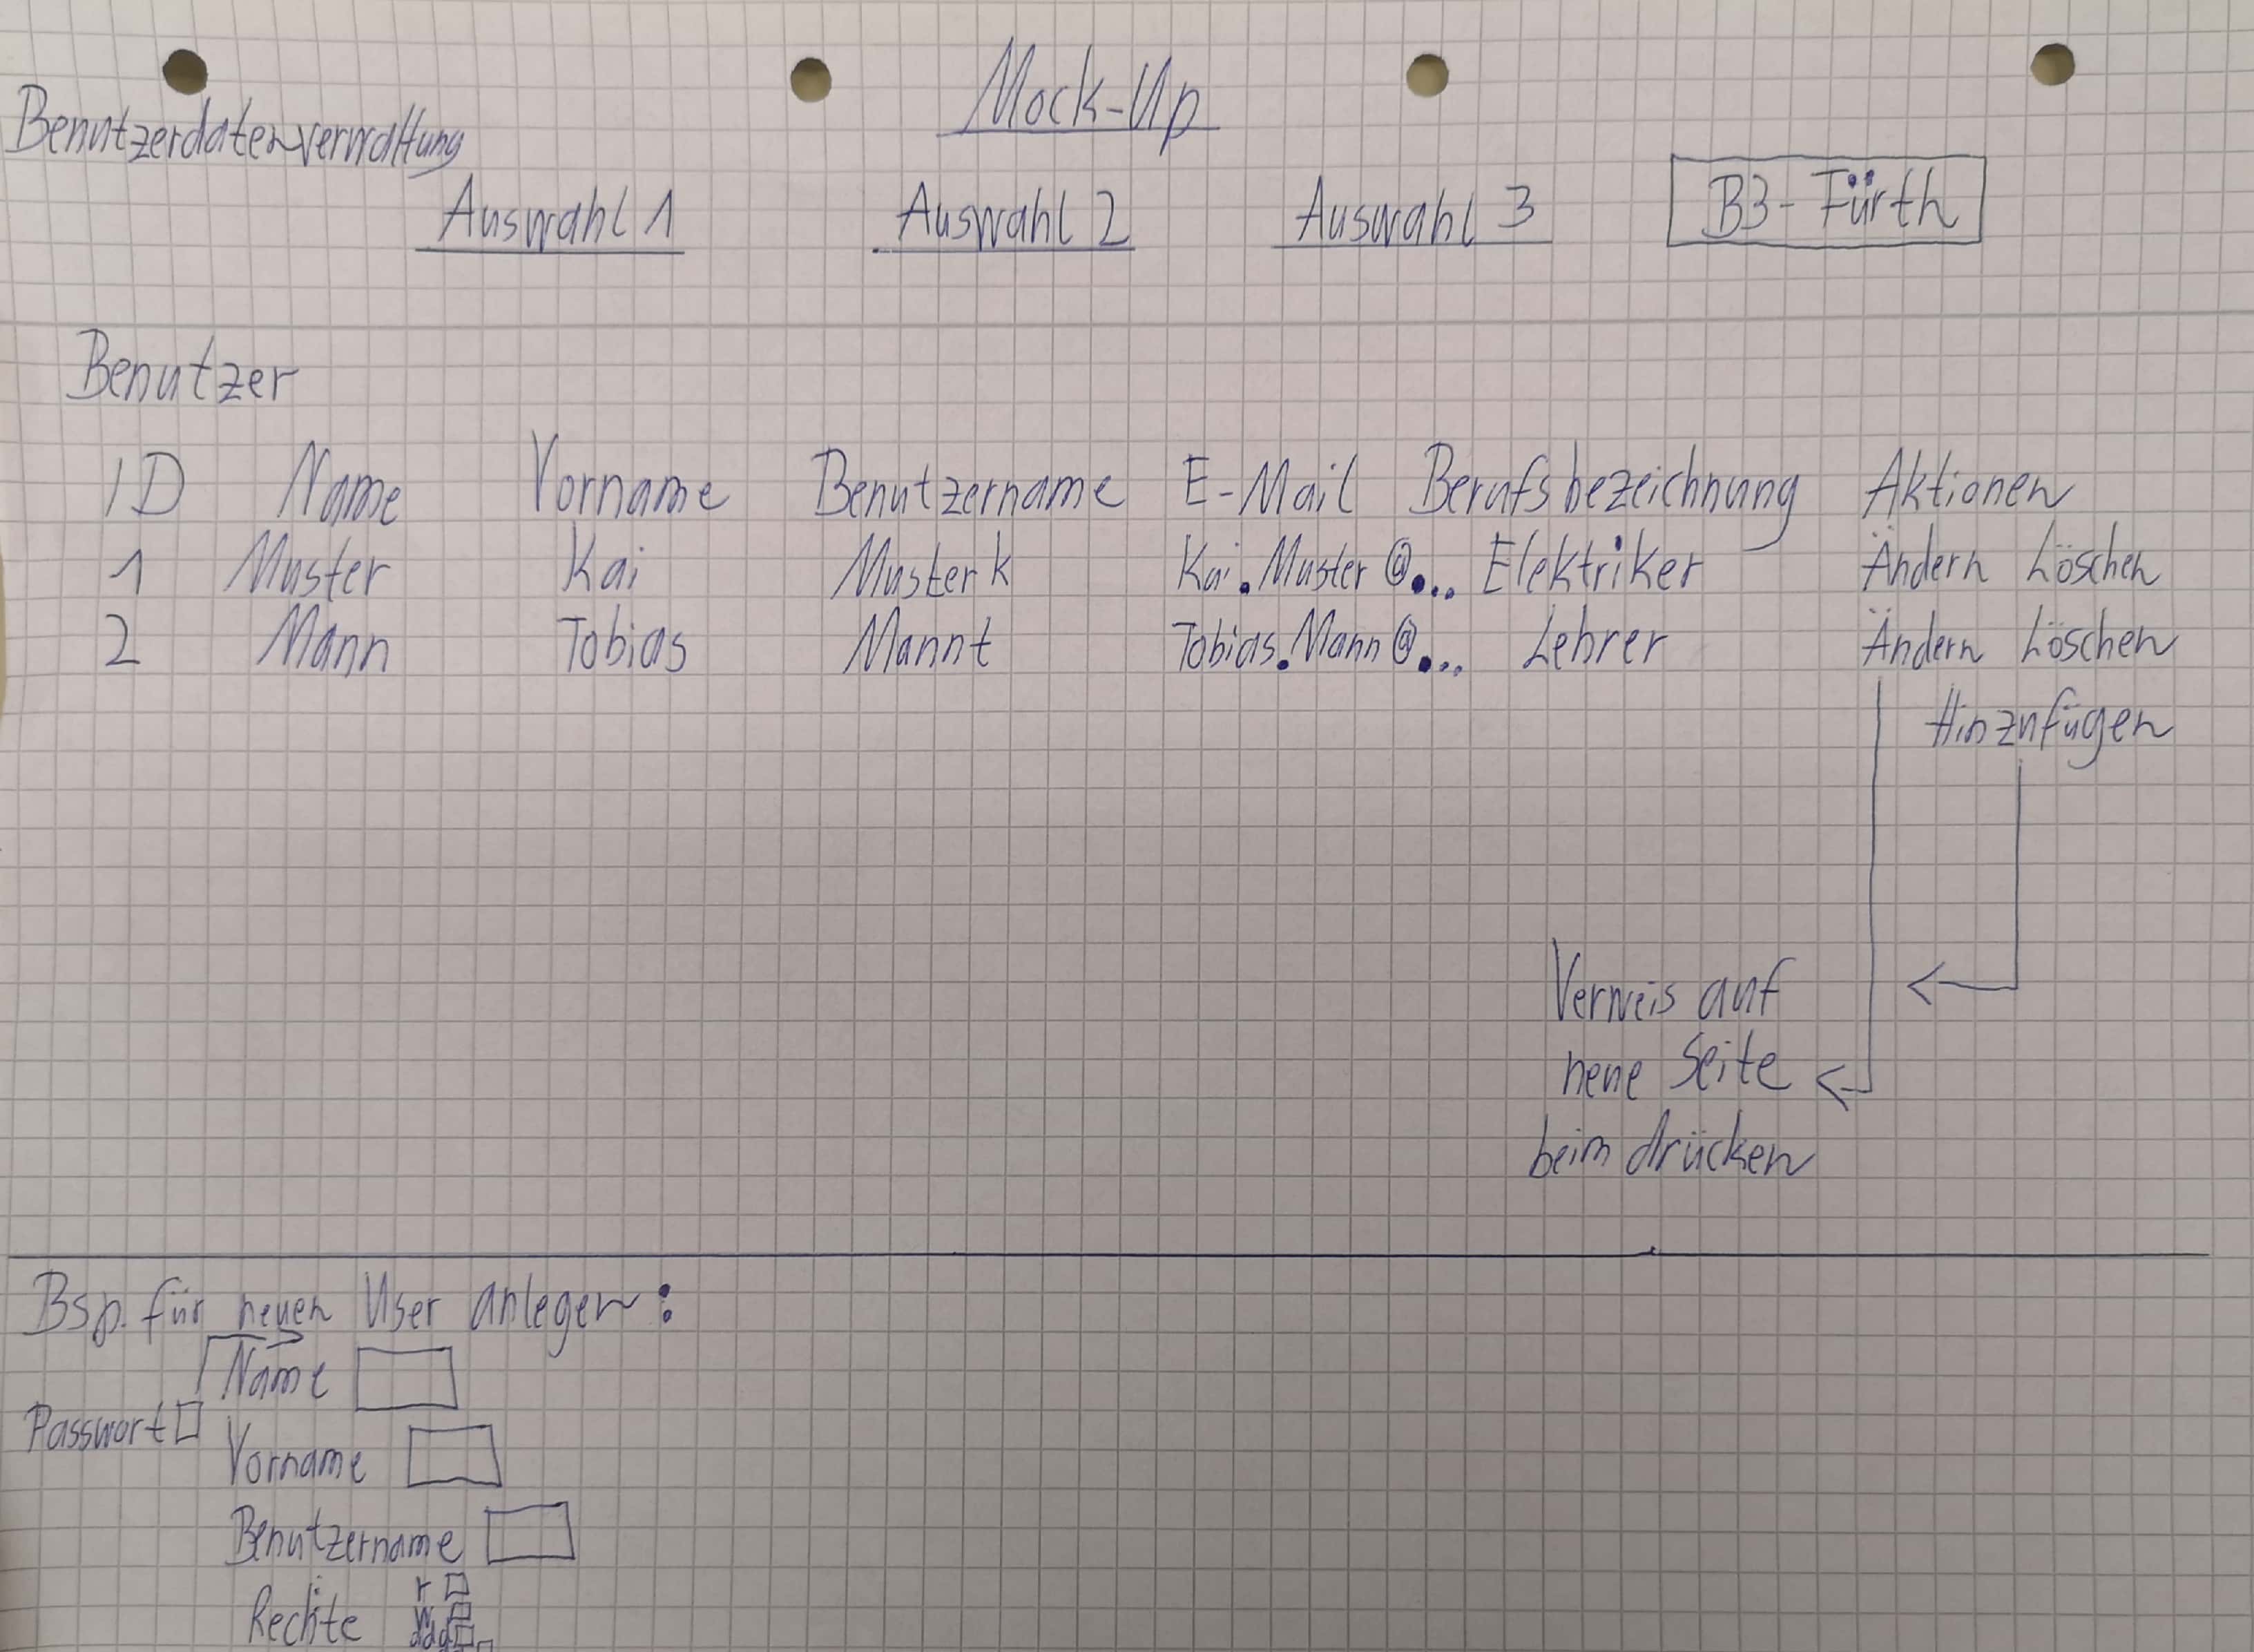 Mock-Up
Benutzerdatenverwaltung
Auswahl 1 Auswahl 2 Auswahl 3 B3-Fürth
Benutzer
ID Name Vorname Benutzername E-Mail Berufsbezeichnung Aktionen
1 Muster Kai Muster k Kai.Muster@... Elektriker Ändern Löschen
2 Mann Tobias Mannt Tobias.Mann@... Lehrer Ändern Löschen
Hinzufügen
Verweis auf
neue Seite
beim drücken
Bsp. für neuen User anlegen:
Name
Passwort
Vorname
Benutzername
Rechte r
w